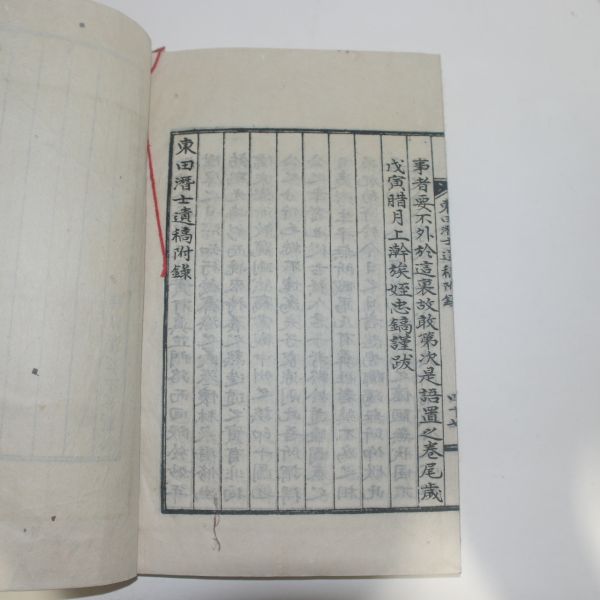 事者要不外於這裏故敢第次是語置之卷尾歲
戊寅腊月上澣族姪忠鎬謹跋
東田潛士遺稿附錄
東田潛士遺稿附錄
四十七